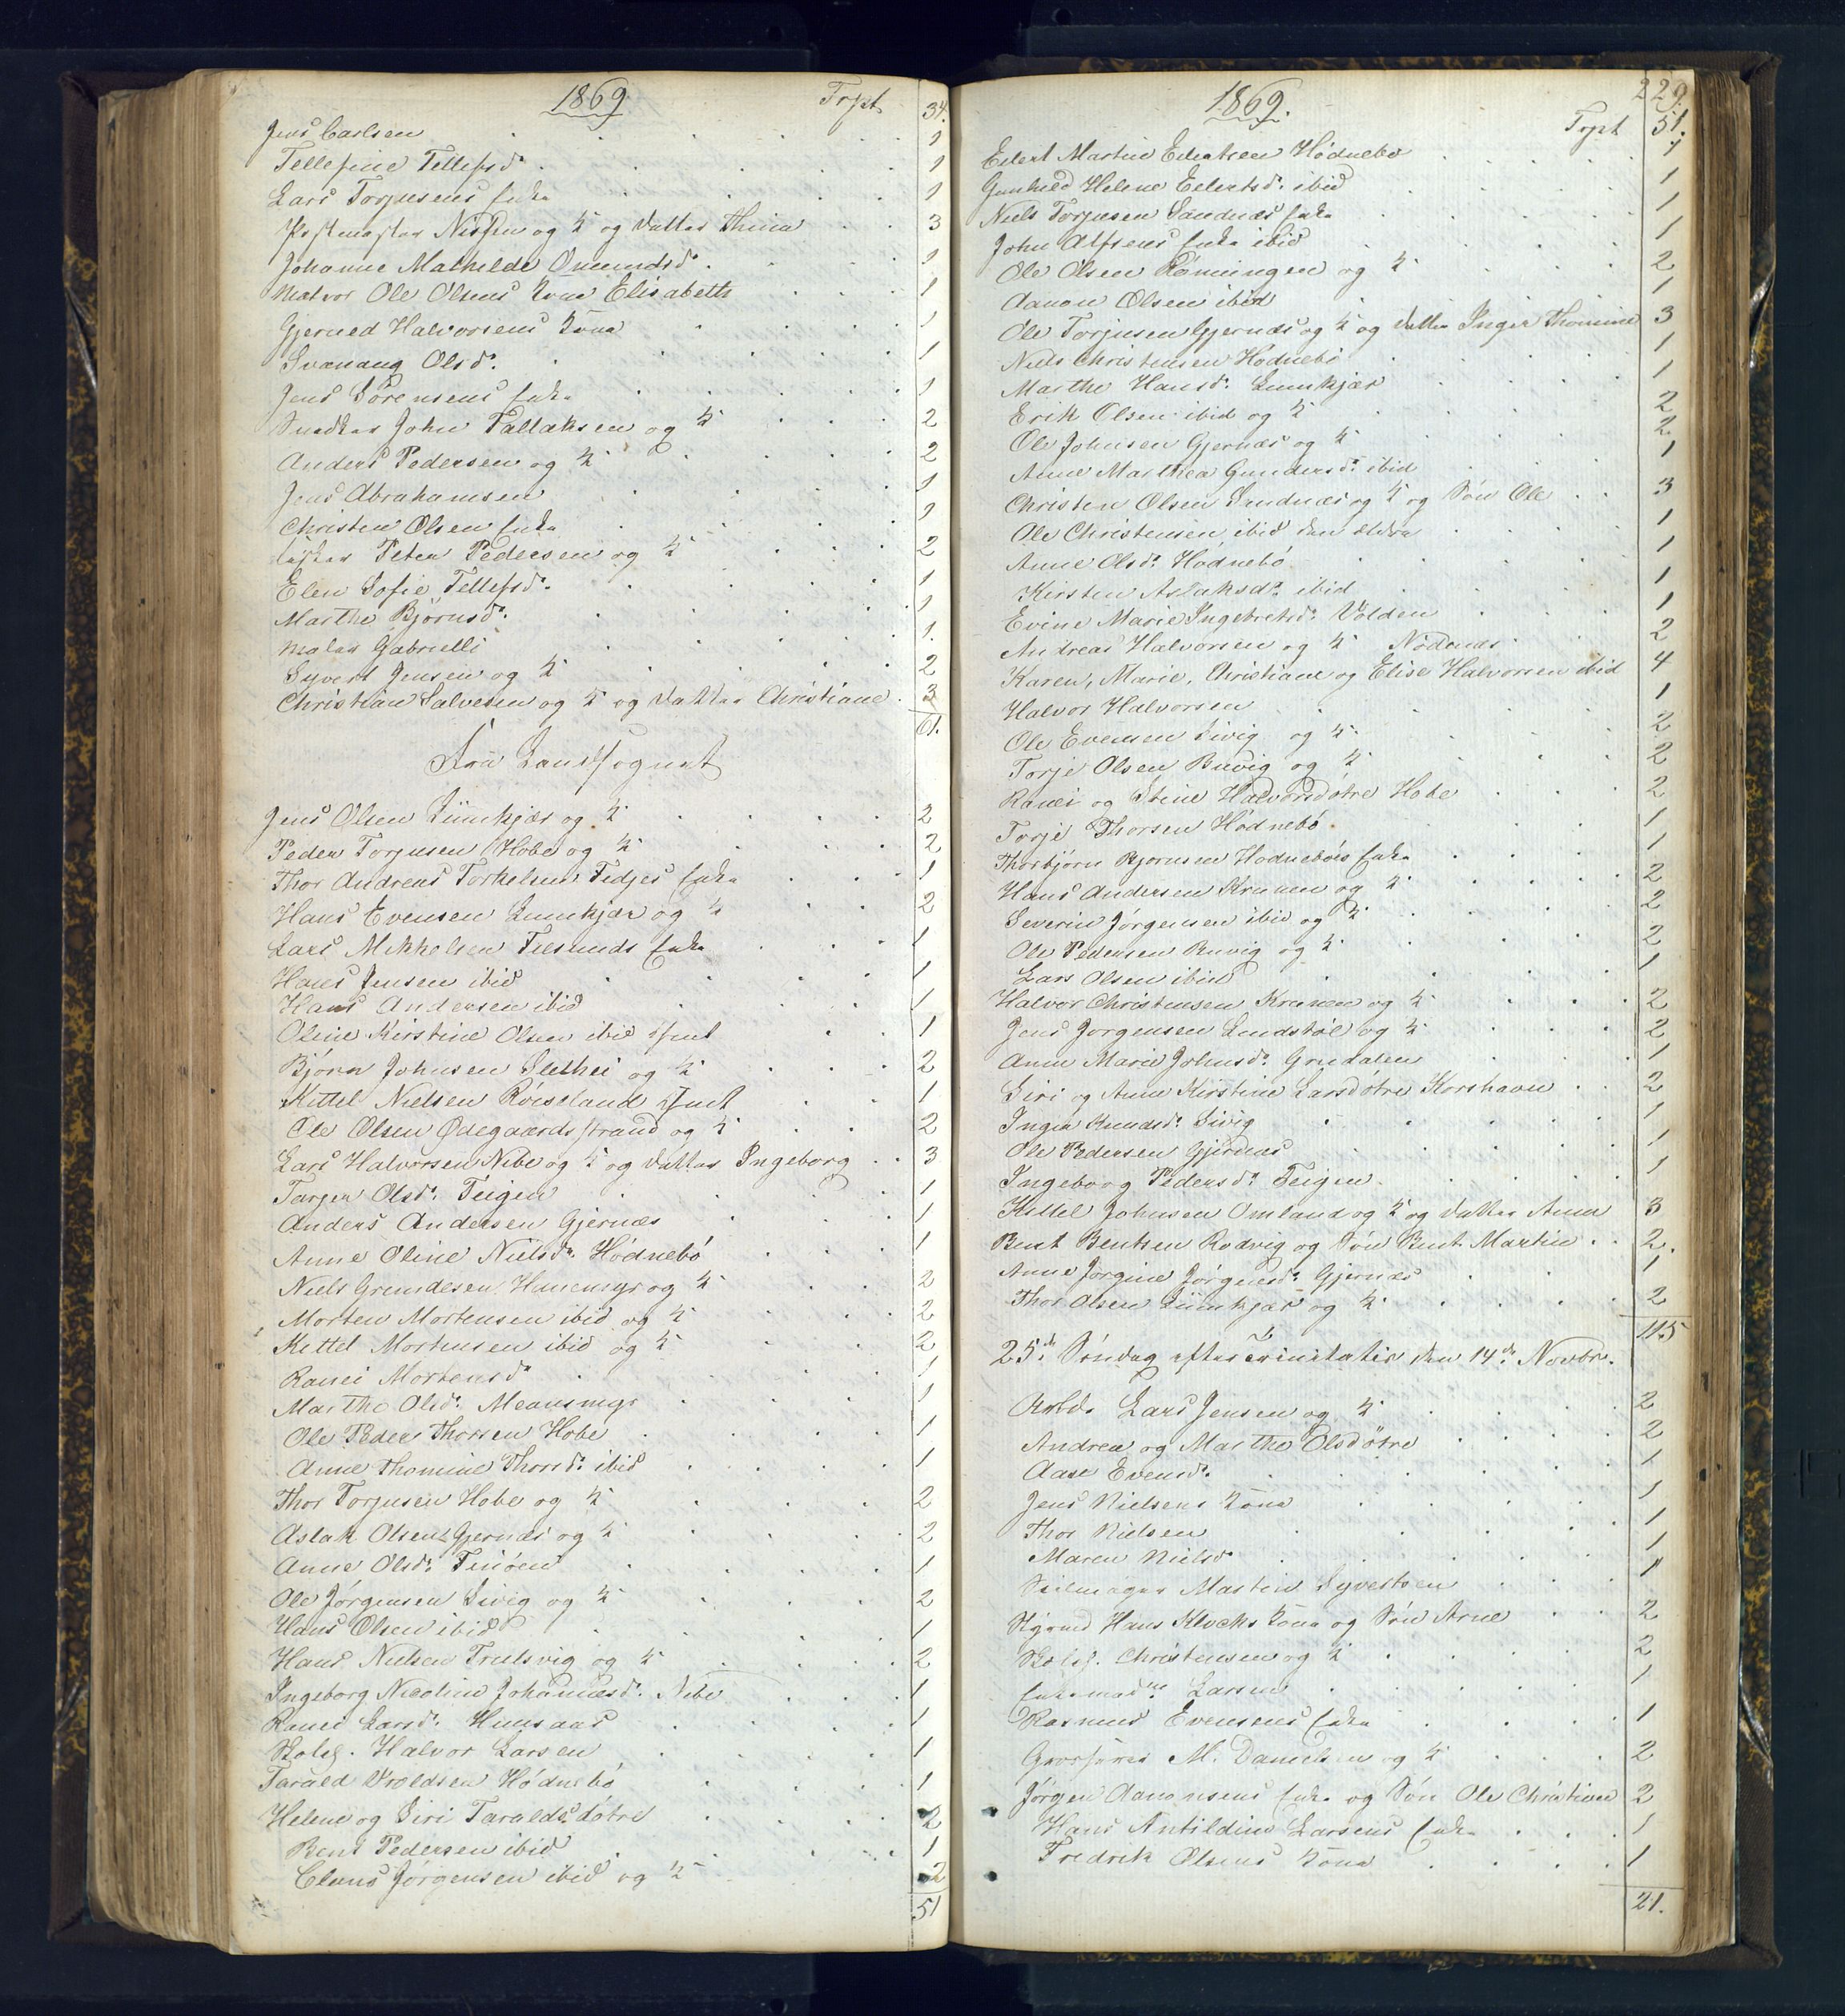 1869
Trpt 34.
Jens Carlsen 1
Tellefine Tellefsd. 1
Lars Torjusens Enke 1
Postmester Nissen og K. og datter Thina 3
Johanne Mathilde Omundsd. 1
Matros Ole Olsens Kone Elisabeth 1
Gjerued Halvorsens Kone 1
Svanaug Olsd. 1
Jens Sørensens Enke 1
Snedker John Tallaksen og K. 2
Anders Pedersen og K. 2
Jens Abrahamsen 1
Christen Olsens Enke 1
Peter Pedersen og K. 2
Elen Sofie Tellefsd. 1
Marthe Bjørnsd. 1
Maler Gabrielli 1.
Syvert Jensen og K. 2
Christian Salvesen og K. og datter Christiane 3
61.
Fra Landsognet
Jens Olsen Lunnkjær og K. 2
Peder Torjusen Hobe og K. 2
Thor Andreas Torkelsen Tedjes Enke 1
Hans Evensen Lunnkjær og K. 2
Lars Mikkelsen Enke 1
Hans Jensen ibid 1
Hans Andersen ibid 1
Oline Kirstine Olsen ibid 1
Bjørn Johnsen Slethei og K. 2
Kittel Nielsen Røiseland 1
Ole Olsen Ødegaardsstrand og K. 2
Lars Halvorsen Nebe og K. og datter Ingeborg 3
Torjer Olsd. Teigen 1
Anders Andersen Gjernæs 1
Anne Oline Nielsd. Hødnebø 1
Niels Grundesen Hanemyr og K. 2
Morten Mortensen ibid og K. 2
Kittel Mortensen ibid og K. 2
Ranei Mortensd. 1
Marthe Olsd. 1
Ole Peder Thorsen Hobe 1
Anne Thomine Thorsd. ibid 1
Thor Torjusen Hobe og K. 2
Aslak Olsen Gjernæs og K. 2
Anne Olsd. 1
Ole Jørgensen Sivig og K. 2
Hans Olsen ibid 1
Hans Nielsen Trulsvig og K. 2
Ingeborg Nicoline Johannesd. Nebe 1
Ranei Larsd. 1
Skolel. Halvor Larsen 1
Tarald Hødnebø 1
Helene og Siri Taraldsdøtre 2
Bent Pedersen ibid 1
Claus Jørgensen ibid og K. 2
51
1869. 229.
Trpt 51.
Edert Martin Edertsen Hødnebø 1
Gunhild Helene Edertsd. ibid 1
Niels Torjusen Sandnæs Enke 1
John Alfsens Enke ibid 1
Ole Olsen Rønningen og K. 2
Aanon Olsen ibid 1
Ole Torjusen Gjernæs og K. og datter Inger Thomine 3
Niels Christensen Hødnebø 1
Marthe Hansd. Lunnkjær 1
Erik Olsen ibid og K. 2
Ole Johnsen Gjernæs og K. 2
Anne Marthea Gundersd. ibid 1
Christen Olsen Sandnæs og K. og Søn Ole 3
Ole Christensen ibid den ældre 1
Anne Olsd. Hødnebø 1
Kirsten Aslaksd. ibid 1
Evine Marie Ingebretsd. Volden 1
Andreas Halvorsen og K. Nødenæs 2
Karen, Marie, Christiane og Elise Halvorsen ibid 4
Halvor Halvorsen 1
Ole Evensen Sivig og K. 2
Torje Olsen Buvig og K. 2
Ranei og Stine Halvorsdøtre Hobe 2
Torje Thorsen Hødnebø 1
Thorbjørn Bjørnsen Hødnebøes Enke 1
Hans Andersen Krunen og K. 2
Severin Jørgensen ibid og K. 2
Ole Pedersen Buvig og K. 2
Lars Olsen ibid 1
Halvor Christensen Krunen og K. 2
Jens Jørgensen Lindstøl og K. 2
Anne Marie Johnsd. Grudalen 1
Siri og Anne Kirstine Larsdøtre Korshavn 2
Inger Knudsd. Sivig 1
Ole Pedersen Gjernæs 1
Ingeborg Pedersd. Teigen 1
Kittel Johnsen Omland og K. og datter Anna 3
Bent Bentsen Rødvig og Søn Bent Martin 2.
Anne Jørgine Jørgensd. Gjernæs 1
Thor Olsen Lunnkjær og K. 2
115
25de Søndag efter Trinitatis den 14de Novbr.
Arbd. Lars Jensen og K. 2
Andrea og Marthe Olsdøtre 2
Aase Evensd. 1
Jens Nielsens Kone 1
Thor Nielsen 1
Maren Nielsd. 1
Seilmager Martin Syvertsen 1
Styrmd Hans Klocks Kone og Søn Arne 2
Skolel. Christensen og K. 2
Enkemad. Larsen 1
Rasmus Evensens Enke 1
M. Danielsen og K. 2
Jørgen Aanonsens Enke og Søn Ole Christian 2
Hans Antildius Larsens Enke 1
Fredrik Olsens Kone 1
21.